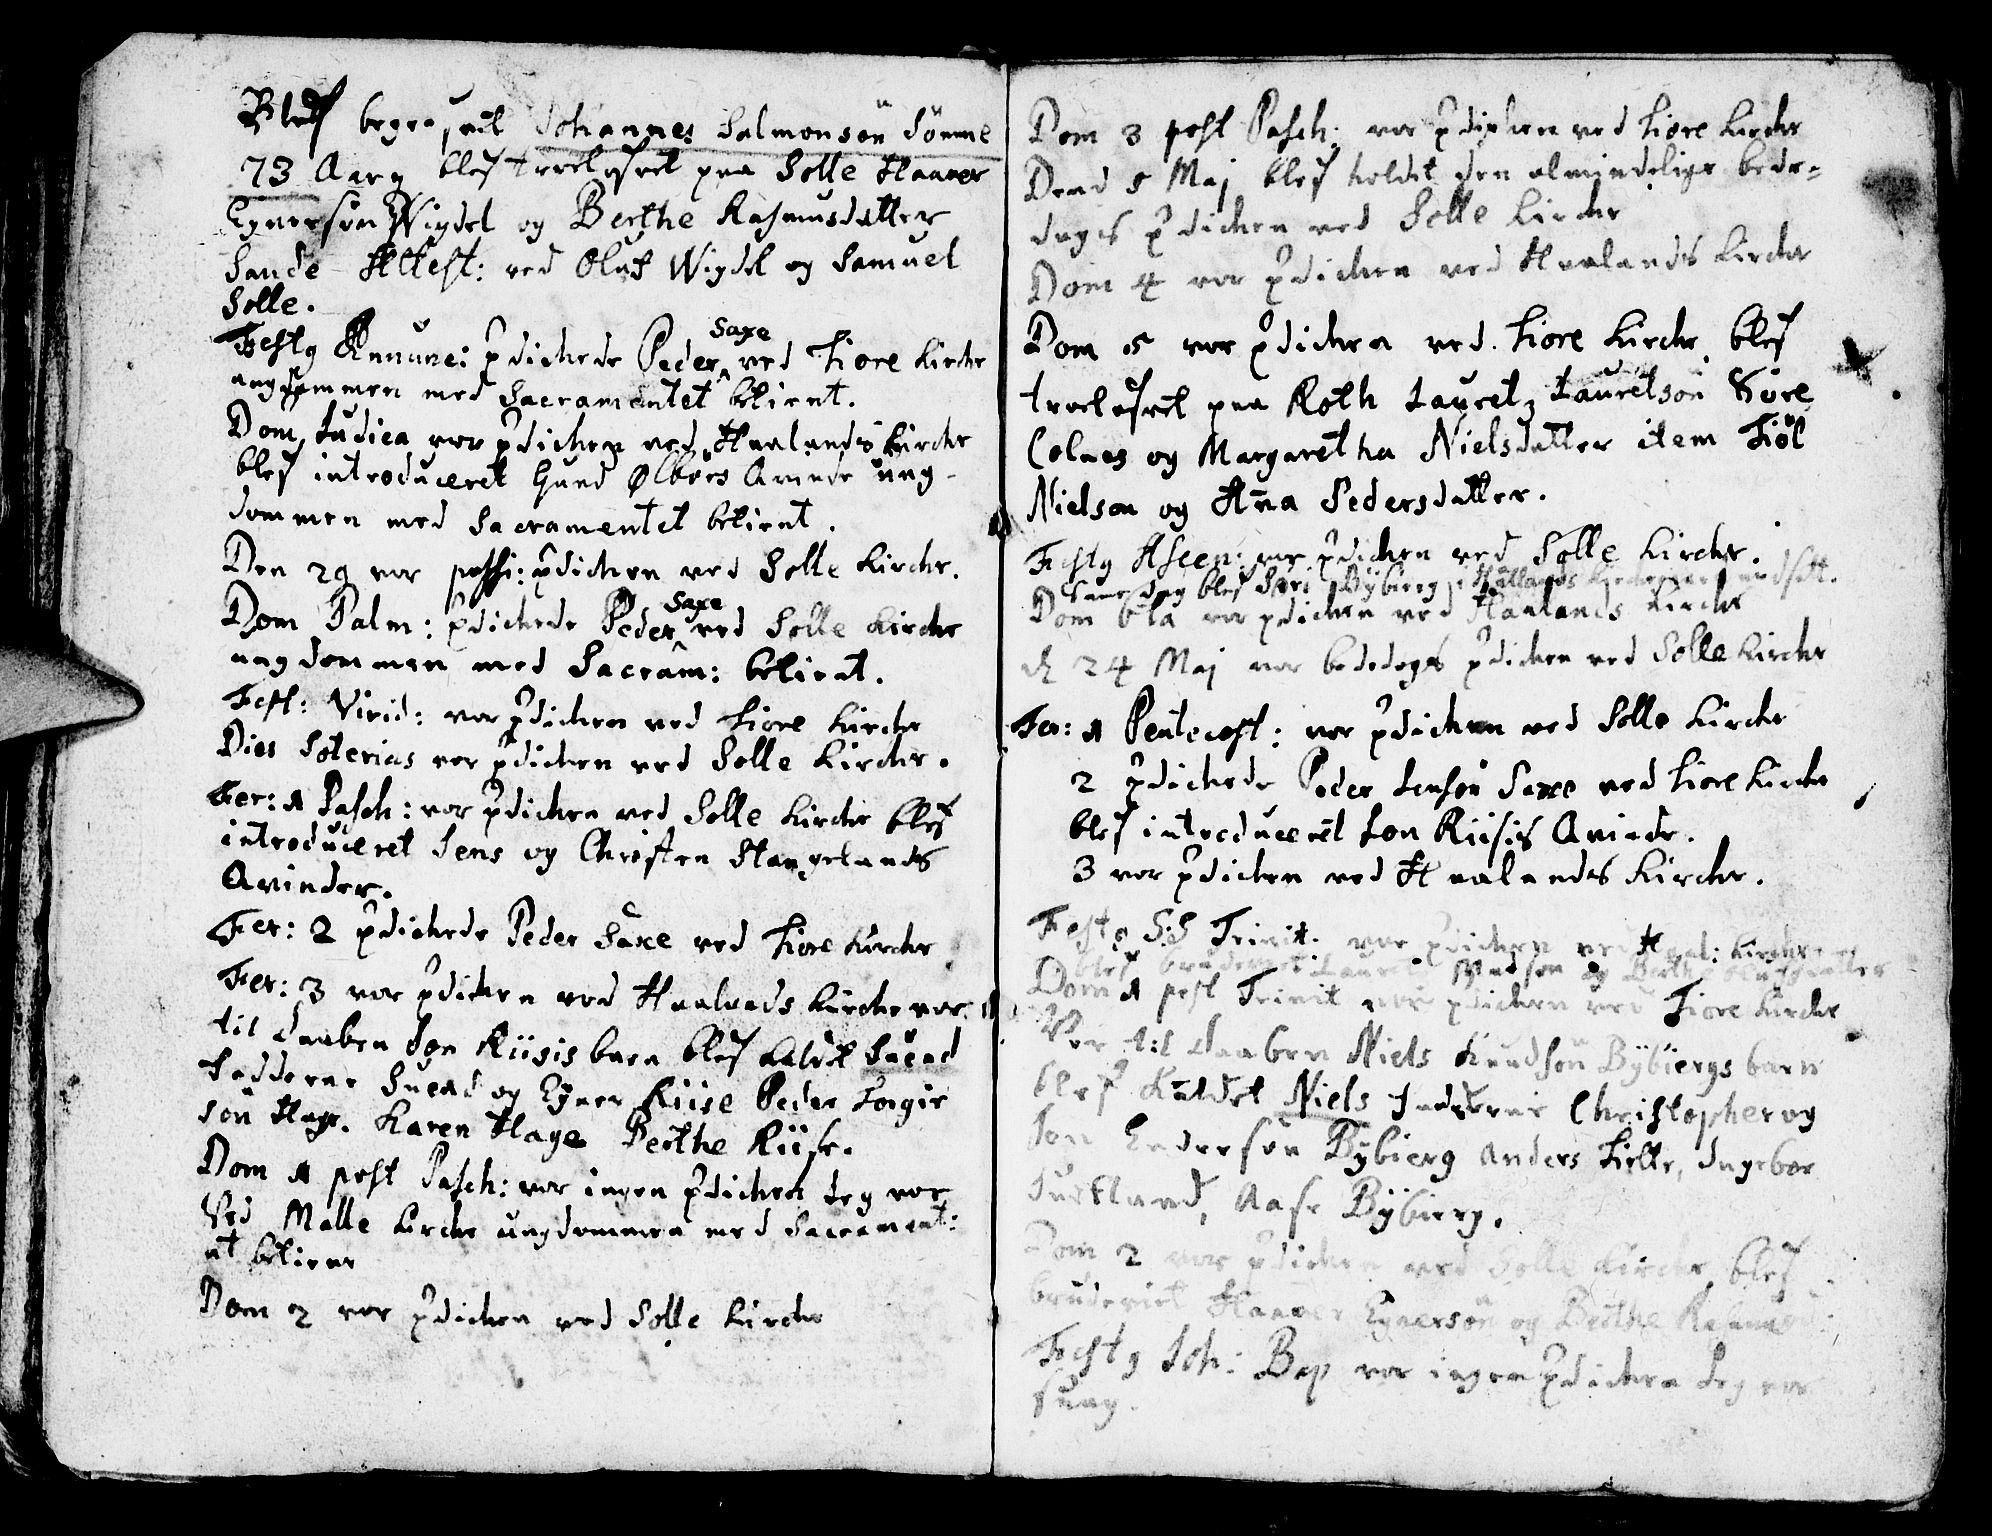 Blef begrafvet Johannes Salmonsön Sömme
73 Aarg blef troelofvet paa Solle Haaver
Eynersön Wigdel og Berthe Rasmusdatter
Sande Attest: ved Oluf Wigdel og Samuel
Solle.
Festg Annunc: pdichede Peder Saxe ved Tiore Kirche
ungdommen med Sacramentet betient.
Dom Judica var pdichen ved Haalands Kirche
blef introduceret Gund Ølbors Qvinde ung-
dommen med Sacramentet betient.
Den 29 var passi: pdichen ved Solle Kirche.
Dom Palm: pdichede Peder Saxe ved Solle Kirche
ungdommen med Sacram: betient.
Fest: Virid: var pdichen ved Tiore Kirche
Dies Soterias var pdichen ved Solle Kirche.
Fer: 1 Pasch: var pdichen ved Solle Kirche blef
introduceret Jens og Christen Stangelands
Qvinder.
Fer: 2 pdichede Peder Saxe ved Tiore Kirche
Fer: 3 var pdichen ved Haalands Kirche var
til Daaben Jon Riisis barn blef kaldet Suend
Fadderne Suend og Eyner Riise Peder Torgir
sön Hage. Karen Hage Berthe Riise.
Dom 1 post Pasch: var ingen pdichen Jeg var
Ved Malle Kirche ungdommen med Sacrament:
at betiene
Dom 2 var pdichen ved Solle Kirche
Dom 3 post Pasch: var pdichen ved Tiore Kirche
Dend 5 Maj blef holdet den almindelige bede-
dagis pdichen ved Solle Kirche
Dom 4 var pdichen ved Haalands Kirche
Dom 5 var pdichen ved Tiore Kirche blef
troelofvet paa Roth Lauretz Lauretsön Söre
Colnes og Margaretha Nielsdatter item Tiöl
Nielson og Ana Pedersdatter.
Festg Ascen: var pdichen ved Solle Kirche.
Same dag blef Siri Bÿbierg i Haalands Kirche
Dom 6ta var pdichen ved Haalands Kirche
d 24 Maj var bededags pdichen ved Solle Kirche
Fer: 1 Pentecost: var pdichen ved Solle Kirche
2 pdichede Peder Jensön Saxe ved Tiore Kirche
blef introduceret Jon Riisis Qvinde.
3 var pdichen ved Haalandes Kirche.
Festg S:S Trinit. var pdichen ved Haal: Kirche
blef brudeviet Lauret og Berthe
Dom 1 post Trinit var pdichen ved Tiore Kirche
Var til Daaben Niels Knudsön Bÿbiergs barn
blef Kaldet Niels Fadderne Christopher og
Jon Endersön Bÿbierg Anders Tielte, Ingebor
Juetland, Aase Bÿbierg.
Dom 2 var pdichen ved Solle Kirche blef
brudeviet Haaver Eynersön og Berthe Rasmus
Festg Joh: Bap var ingen pdichen Jeg var
siuag.